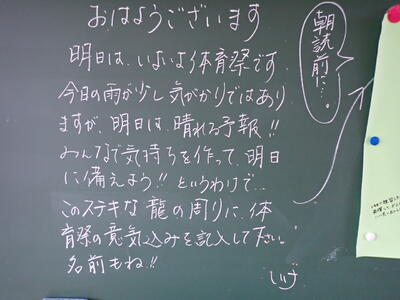 おはようございます
明日は、いよいよ体育祭です
今日の雨が少し気がかりではあり
ますが、明日は、晴れる予報!!
みんなで気持ちを作って、明日
に備えよう!! というわけで…
このステキな龍の周りに、体
育祭の意気込みを記入して下さい。
名前もね!!
朝読前に…。